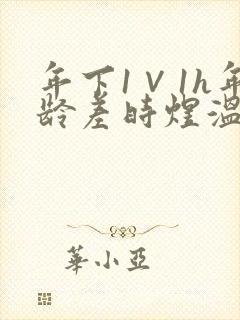 年下1V1h年
龄差时煜温
華小亞